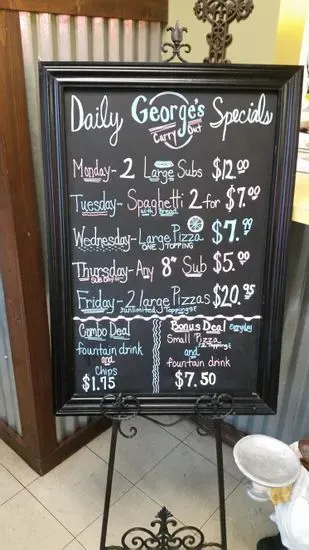 Daily George's Specials
Carry Out
Monday - 2 Large Subs $12.00
Tuesday - Spaghetti 2 for $7.00
with Bread
Wednesday - Large Pizza $7.99
ONE TOPPING
Thursday - Any 8" Sub $5.00
SUB DAY
Friday - 2 large Pizzas $20.95
unlimited Toppings
Combo Deal
fountain drink
and
Chips
$1.75
Bonus Deal everyday
Small Pizza
and
fountain drink
$7.50